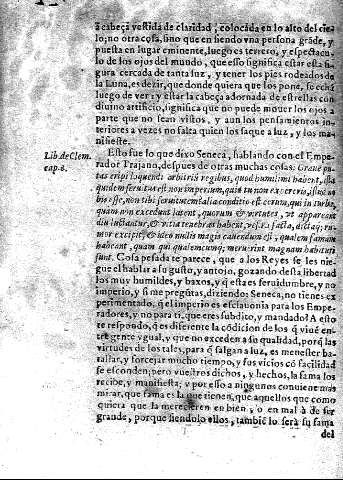 a cabeça vestida de claridad, colocada en lo alto del cie-
lo; no otra cosa, sino que en siendo vna persona grãde, y
puesta en lugar eminente, luego es terrero, y espectacu-
lo de los ojos del mundo, que esso significa estar esta fi-
gura cercada de tanta luz, y tener los pies rodeados de
la Luna, es dezir, que donde quiera que los pone, se echa
luego de ver: y estar la cabeça adornada de estrellas con
diuino artificio, significa que no puede mouer los ojos a
parte que no sean vistos, y aun los pensamientos in-
teriores a vezes no falta quien los saque a luz, y los ma-
nifieste.
Lib. de Clem. cap. 8.
Esto fue lo que dixo Seneca, hablando con el Empe-
rador Trajano, despues de otras muchas cosas. Graue pu-
tas eripi loquendi arbitrium regibus, quod humillimi habent, ista
quidem seruitus est non imperium, quid tu non experiris, istud no
bis esse, non tibi seruitutem? alia conditio est eorum, qui in turba,
quam non excedunt latent, quorum & virtutes, vt appareant
diu luctantur, & vitia tenebras habent, vestra facta, dictaq; ru-
mor excipit, & ideo nullis magis cauendum est, qualem famam
habeant, quam qui qualemcunq; meruerint magnam habituri
sunt. Cosa pesada te parece, que a los Reyes se les nie-
gue el hablar a su gusto, y antojo, gozando desta libertad
los muy humildes, y baxos, y q̃ esta es seruidumbre, y no
imperio, y si me pregũtas, diziendo: Seneca, no tienes ex
perimentado, q̃ el imperio es esclauonia para los Empe-
radores, y no para ti, que eres subdito, y mandado? A esto
te respondo, q̃ es diferente la cõdicion de los q̃ viuẽ en-
tre gente ygual, y que no exceden a su qualidad, porq̃ las
virtudes de los tales, para q̃ salgan a luz, es menester ba-
tallar, y forcejar mucho tiempo, y sus vicios cõ facilidad
se esconden; pero vuestros dichos, y hechos, la fama los
recibe, y manifiesta; y por esso a ningunos conuiene mas
mirar, que fama es la que tienen, que aquellos que como
quiera que la merecieren en bien, o en mal à de ser
grande, porque siendolo ellos, tambiẽ lo será su fama
del